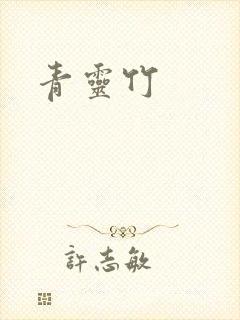 青靈竹
許志敏